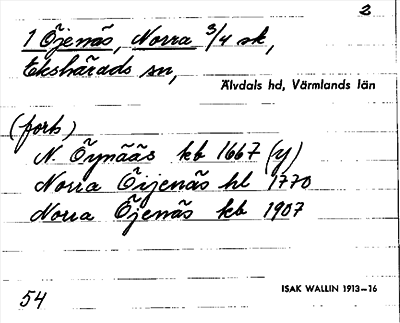 2
1 Öjenäs, Norra 3/4 sk,
Ekshärads sn,
Älvdals hd, Värmlands län
(forts)
N. Öynääs kb 1667 (y)
Norra Öijenäs hl 1770
Norra Öjenäs kb 1907
54
ISAK WALLIN 1913–16